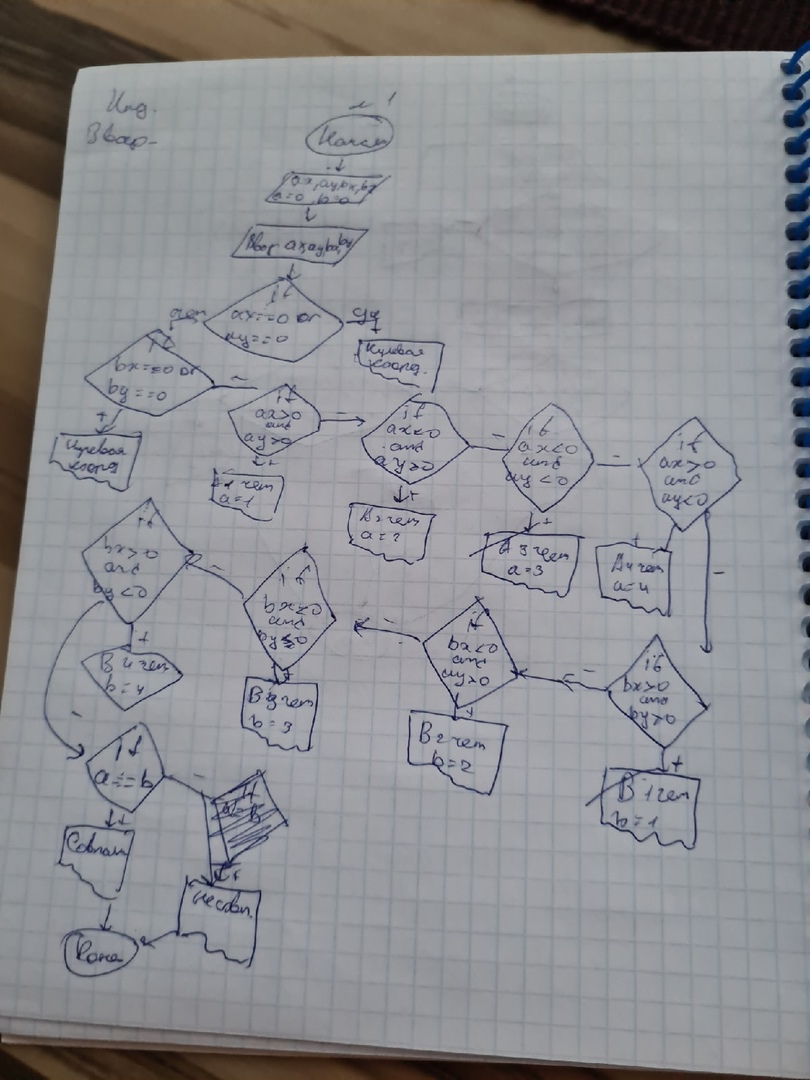 Инд.
3 вар.
№ 1
Начало
ax, ay, bx, by
a=0 b=0
Ввод ax, ay, bx, by
if
ax==0 or
ay==0
нет
да
Нулевая
коорд.
if
bx==0 or
by==0
+
-
Нулевая
коорд
if
ax>0
and
ay>0
-
+
A 1 чет
a=1
if
ax<0
and
ay>0
-
+
A 2 чет
a=2
if
ax<0
and
ay<0
-
+
A 3 чет
a=3
if
ax>0
and
ay<0
+
-
A 4 чет
a=4
if
bx>0
and
by>0
-
+
B 1 чет
b=1
if
bx<0
and
ay>0
-
+
B 2 чет
b=2
if
bx<0
and
-
+
B 3 чет
b=3
if
and
by<0
+
-
B 4 чет
b=4
if
a==b
-
+
Совпал
+
Не совп.